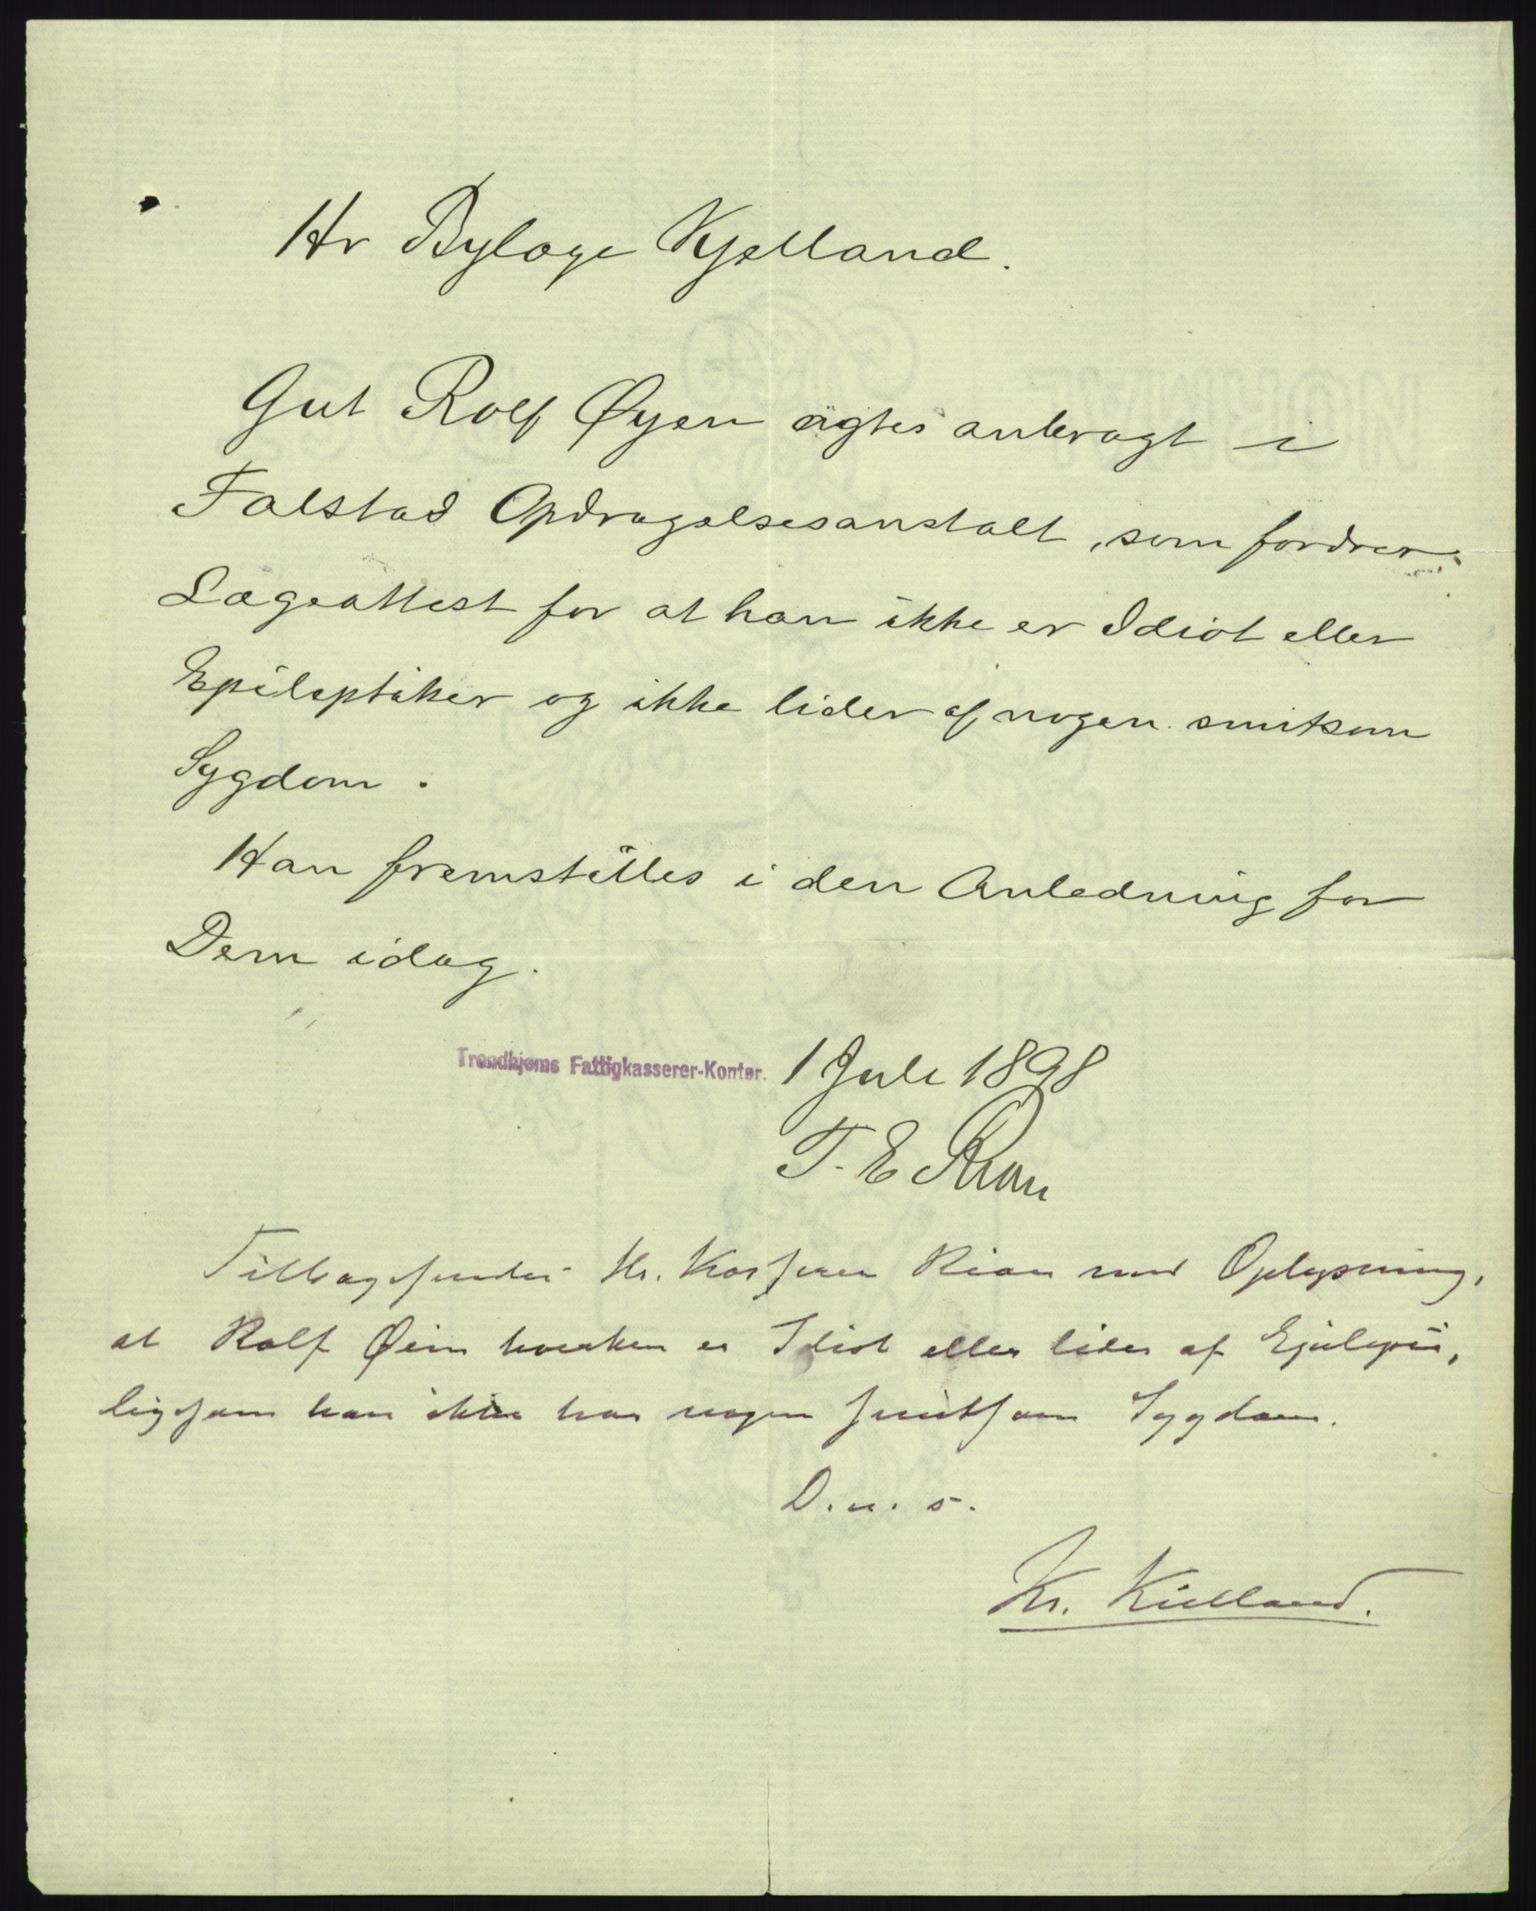 Hr Bylæge Kjelland.
Gut Rolf Øyen agtes anbragt i
Falstad Opdragelsesanstalt, som fordrer
Lægeattest for at han ikke er Idiot eller
Epileptiker og ikke lider af nogen smitsom
Sygdom.
Han fremstilles i den Anledning for
Dem idag.
Trondhjems Fattigkasserer-Kontor. 1 Juli 1898
T. E. Rian
Tilbagesendes Hr. Kasserer Rian med Oplysning,
at Rolf Øien hverken er Idiot eller lider af Epilepsi,
ligesom han ikke har nogen smitsom Sygdom.
D. u. s.
Kr. Kielland.